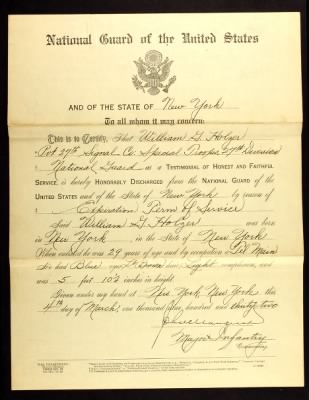 National Guard of the United States
AND OF THE STATE OF New York
To all whom it may concern:
This is to Certify, That William G Holzer
Pvt 27th Signal Co: Special Troops 27th Division
National Guard AS A TESTIMONIAL OF HONEST AND FAITHFUL
SERVICE, IS HEREBY HONORABLY DISCHARGED FROM THE NATIONAL GUARD OF THE
UNITED STATES AND OF THE STATE OF New York BY REASON OF
Expiration Term of Service
Said William G Holzer was born
in New York in the State of New York
When enlisted he was 29 years of age and by occupation Tel Man
He had Blue eyes, Brown hair, Light complexion, and
was 5 feet 10½ inches in height
Given under my hand at New York, New York this
4th day of March, one thousand nine hundred and thirty two
Major Infantry
Commanding